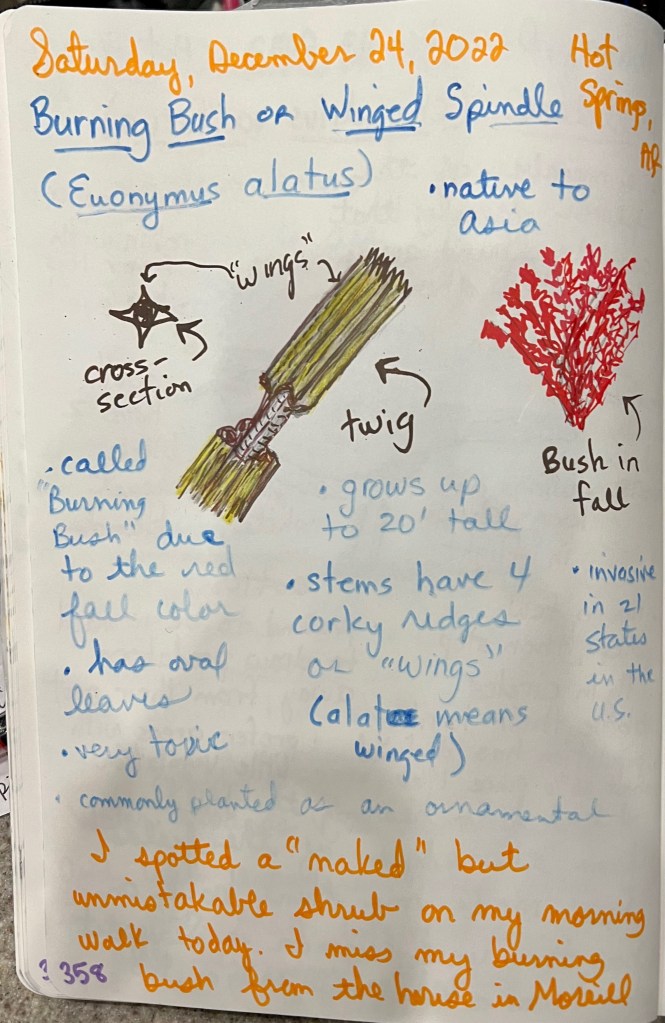 Saturday, December 24, 2022
Hot
Springs,
AR
Burning Bush or Winged Spindle
(Euonymus alatus)
• native to
asia
"wings"
cross-
section
twig
Bush in
fall
• called
"Burning
Bush" due
to the red
fall color
• has oval
leaves
• very toxic
• grows up
to 20' tall
• stems have 4
corky ridges
or "wings"
(alatus means
winged)
• invasive
in 21
states
in the
U.S.
• commonly planted as an ornamental
I spotted a "naked" but
unmistakable shrub on my morning
walk today. I miss my burning
bush from the house in Morrill
358